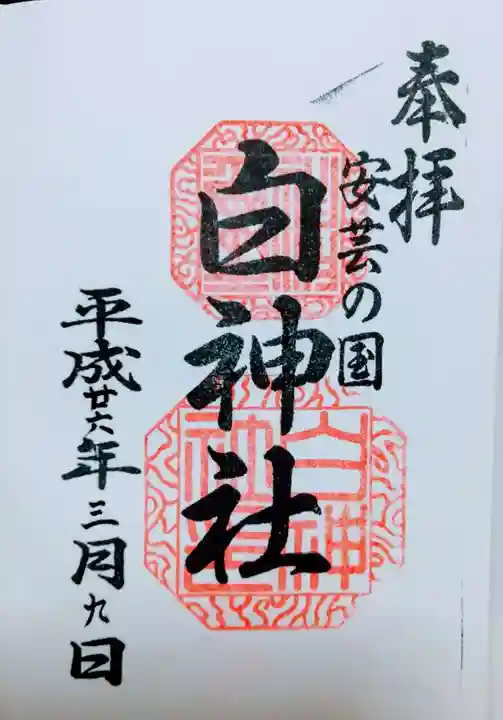 奉拝
安芸の国
白神社
平成廿六年三月九日
白神